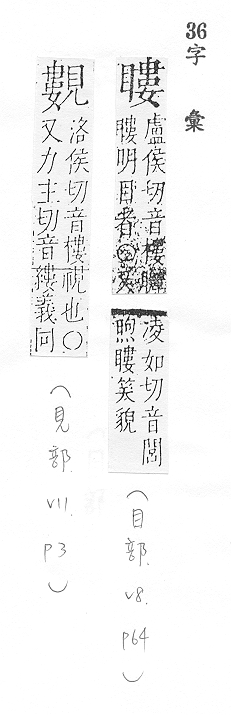 36字 彙
瞜
盧侯切音樓
瞜明目者◎又
凌如切音閭
煦瞜笑貌
(目部 v8. p64)
䙔
洛侯切音樓視也〇
又力主切音縷義同
(見部 v11. p3)